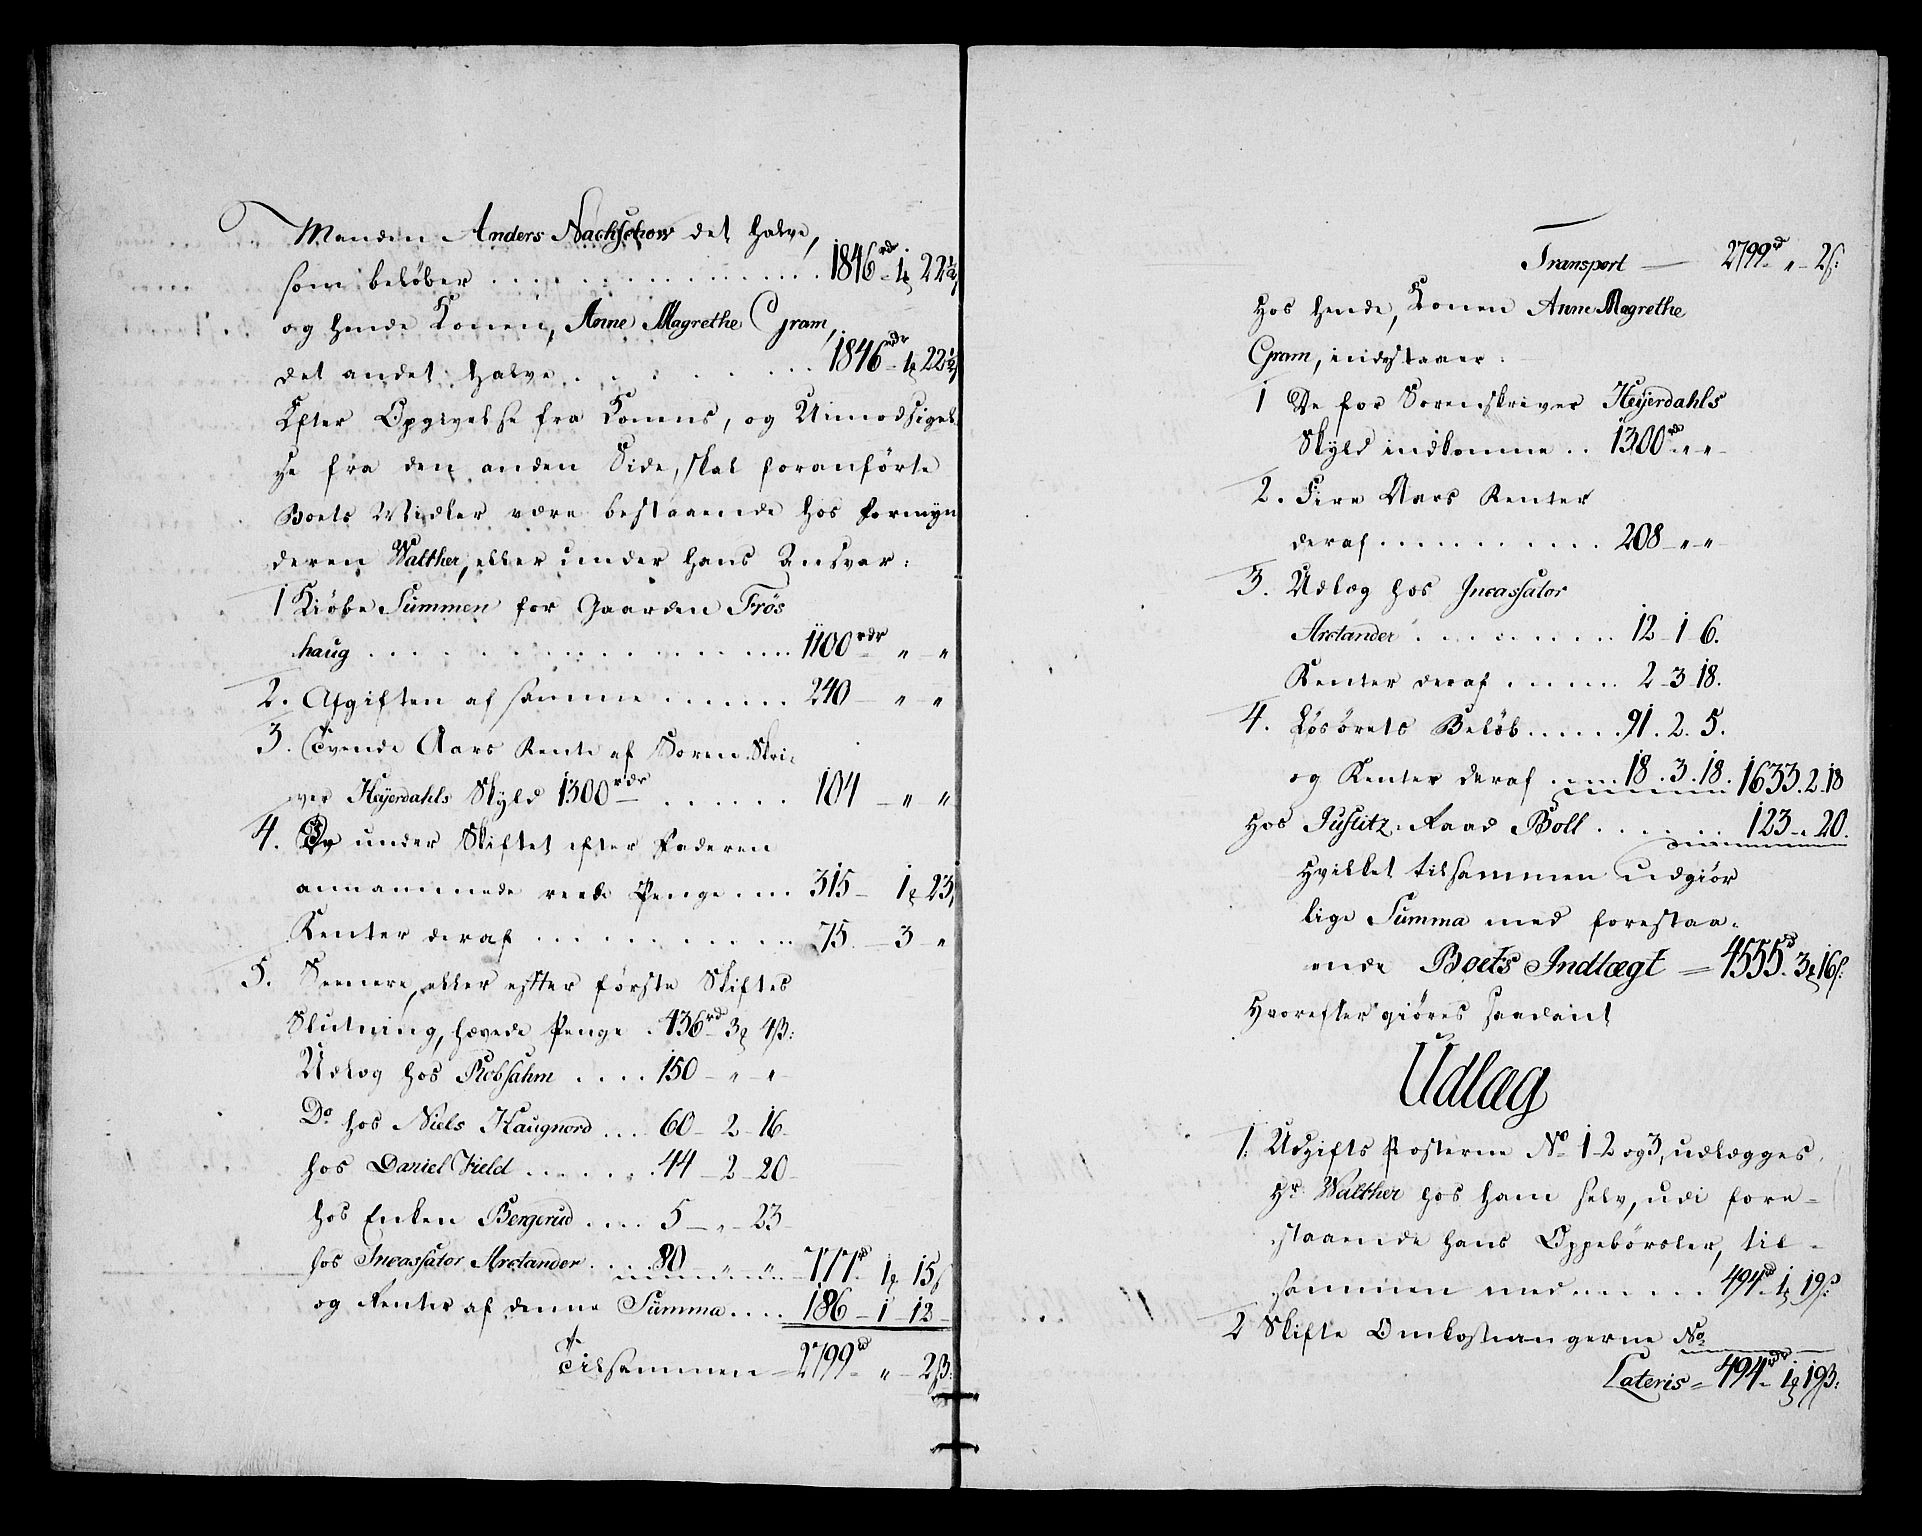 Manden Anders Nachschow det halve,
som beløber . . . . . . . 1846rdr 1 22½
og hende Konen, Anne Magrethe Gram,
det andet halve . . . . . . 1846rdr 1 22½
Efter Opgivelse fra Konens, og Uimodsigel
se fra den anden Side, skal foranførte
Boets Midler være bestaaende hos formyn
deren Walther, eller under hans Ansvar:
1 Kiøbe Summen for Gaarden Frös
haug . . . . . . . 1100rdr „ „
2. Afgiften af samme . . . . . . . 240 „ „
3. Tvende Aars Rente af Soren Skri-
ver Heyerdahls Skyld 1300rdr . . . . . . 104 „ „
4. De under Skiftet efter Faderen
annammede rede Penge . . . 315 1 23
Renter deraf . . . . . . . 75 3 „
5. Senere, eller efter første Skiftes
Slutning, hævede Penge . 436rd 3 4ß:
Udlæg hos Robsahm . . . . 150 „ „
Do hos Niels Haugnord . . . 60 - 2 - 16
hos Daniel Field . . . . . . 44 - 2 - 20
hos Enken Bergerud . . . . 5 „ 23
hos Incassator Arctander . . . 80 „ „ 777rd 1 15
og Renter af denne Summa . . . . 186 - 1 - 12
Tilsammen 2799rd „ 2ß:
Transport 2799rd „ 2ß:
Hos hende, Konen Anne Magrethe
Gram, indestaaer:
1 De for Sorenskriver Heyerdahls
Skyld indkomne . . 1300rd „ „
2. Fire Aars Renter
deraf . . . . . . . 208 „ „
3. Udlæg hos Incassator
Arctander . . . . . . 12 - 1 - 6.
Renter deraf . . . . . . 2 - 3 - 18.
4. Løsørets Beløb . . . . . . 91. 2. 5.
og Renter deraf . . . . 18. 3. 18. 1633. 2. 18
Hos Justitz: Raad Boll . . . . . . 123 „ 20.
Hvilket tilsammen udgiør
lige Summa med forestaa-
ende Boets Indlægt = 4555rd 3 16ß:
Hvorefter giøres saadant
Udlæg
1. Udgifts Posterne No 1-2 og 3, udlægges
Hr. Walther hos ham selv, udi fore-
staaende hans Oppebørsler, til-
sammen med . . . . . . 494rd 1 19ß:
2 Skifte Omkostningerne No
Lateris = 494rdr 1 19ß: